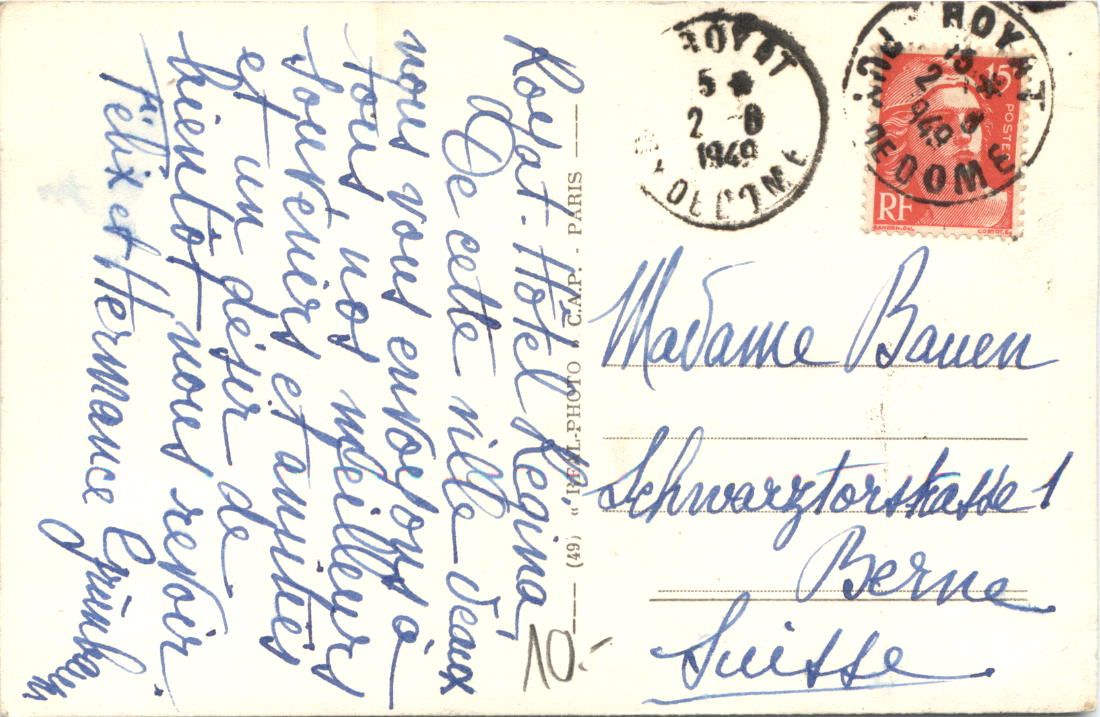 Royat-Hôtel Régina,
De cette ville d'eaux
nous vous envoyons à
tous nos meilleurs
souvenirs et amitiés
et un désir de
bientôt nous revoir
Félix et Hermance
(49) « REAL-PHOTO » C.A.P. - PARIS
10.-
ROYAT
5 *
2 - 8
1949
PUY DE DOME
ROYAT
15 *
2 - 8
1949
PUY DE DOME
15F
POSTES
RF
GANDON.DEL.
CORTOT.SC
Madame Bauen
Schwarztorstrasse 1
Berne
Suisse